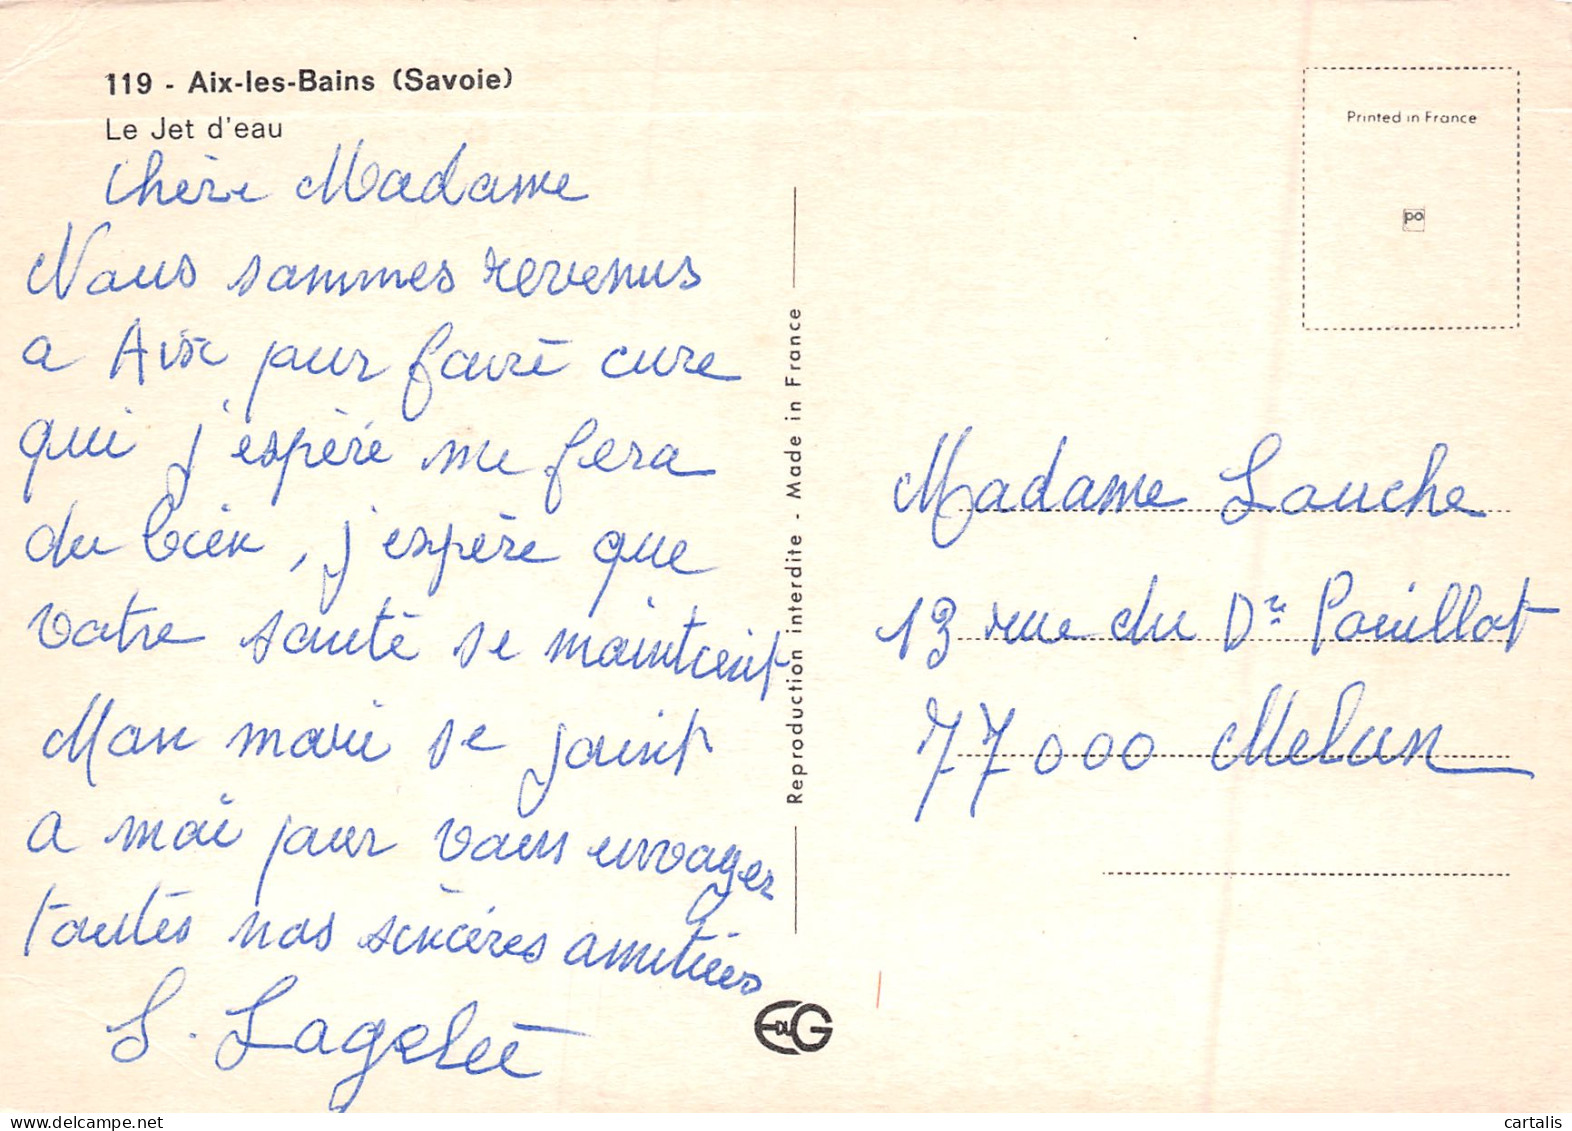 119 - Aix-les-Bains (Savoie)
Le Jet d'eau
Chère Madame
Nous sommes revenus
a Aix pour faire cure
qui j'espère me fera
du bien, j'espère que
votre santé se maintient
Mon mari se joint
a moi pour vous envoyer
toutes nos sincères amitiés
S. Lagelée
Reproduction interdite - Made in France
EDUG
Printed in France
po
Madame Louche
13 rue du Dr Pouillot
77000 Melun
delcampe.net
cartalis